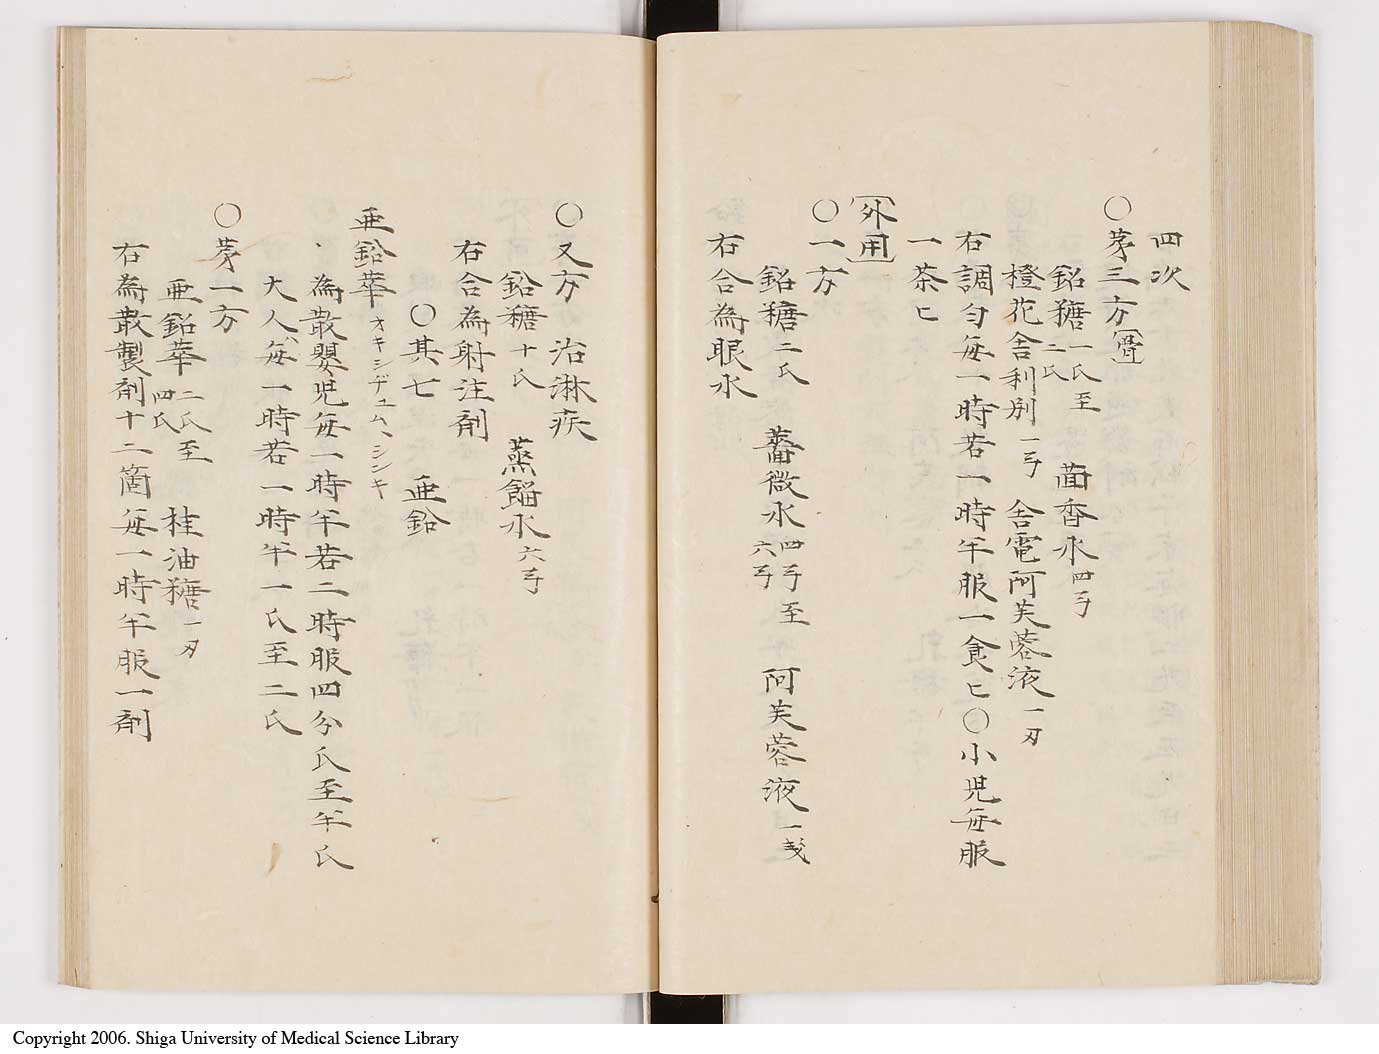 四次
〇㐧三方〔滑〕
鉛糖一氏至二氏 茴香水四弓
橙花舎利別一弓 舎電阿芙蓉液一刃
右調匀毎一時若一時半服一食匕〇小児毎服
一茶匕
〔外用〕
〇一方
鉛糖二氏 薔薇水四弓至六弓 阿芙蓉液一戔
右合為眼水
〇又方 治淋疾
鉛糖十氏 蒸餾水六弓
右合為射注剤
〇其七 亜鉛
亜鉛華オキシヂュム、シンキ
為散嬰児毎一時半若二時服四分氏至半氏
大人ハ毎一時若一時半一氏至二氏
〇㐧一方
亜鉛華二氏至四氏 桂油糖一刃
右為散製剤十二箇毎一時半服一剤
Copyright 2006. Shiga University of Medical Science Library